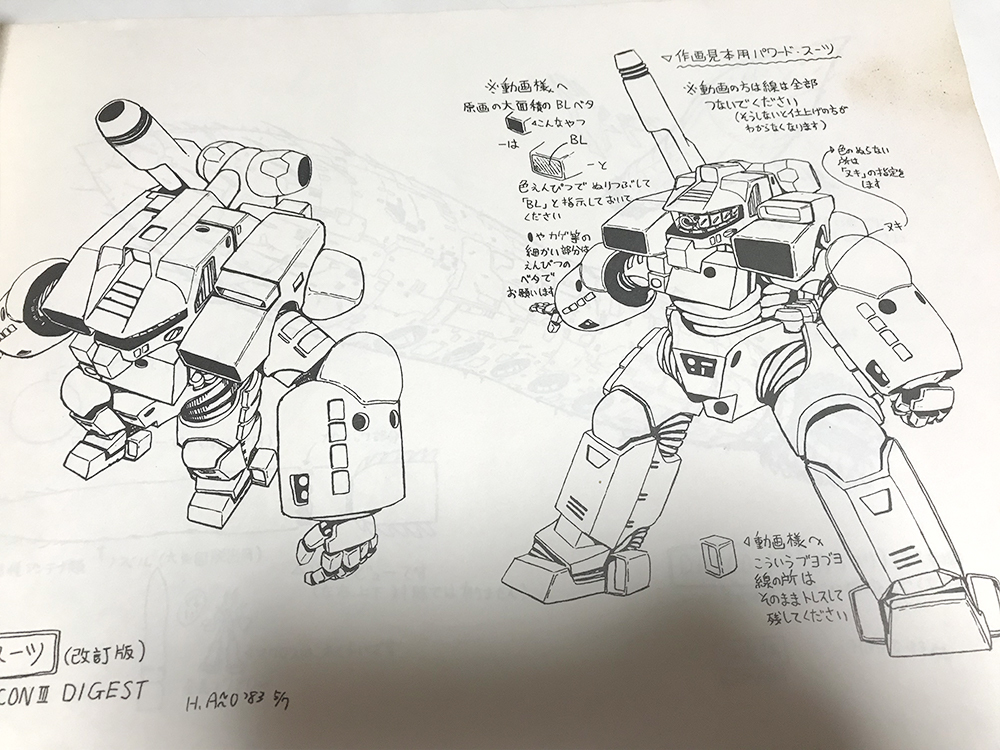 ▽作画見本用パワード・スーツ
※動画の方は線は全部
つないでください
(そうしないと仕上げの方が
わからなくなります)
色のぬらない
所は
「ヌキ」の指定を
します
ヌキ
※動画様へ
原画の大面積のBLベタ
◁こんなやつ
ーは
BL
ーと
色えんぴつでぬりつぶして
「BL」と指示しておいて
ください
やカゲ等の
細かい部分は
えんぴつの
ベタで
お願いします
◁動画様へ
こういうブヨブヨ
線の所は
そのままトレスして
残してください
スーツ (改訂版)
CONⅢ DIGEST
H.AnnO '83 5/7